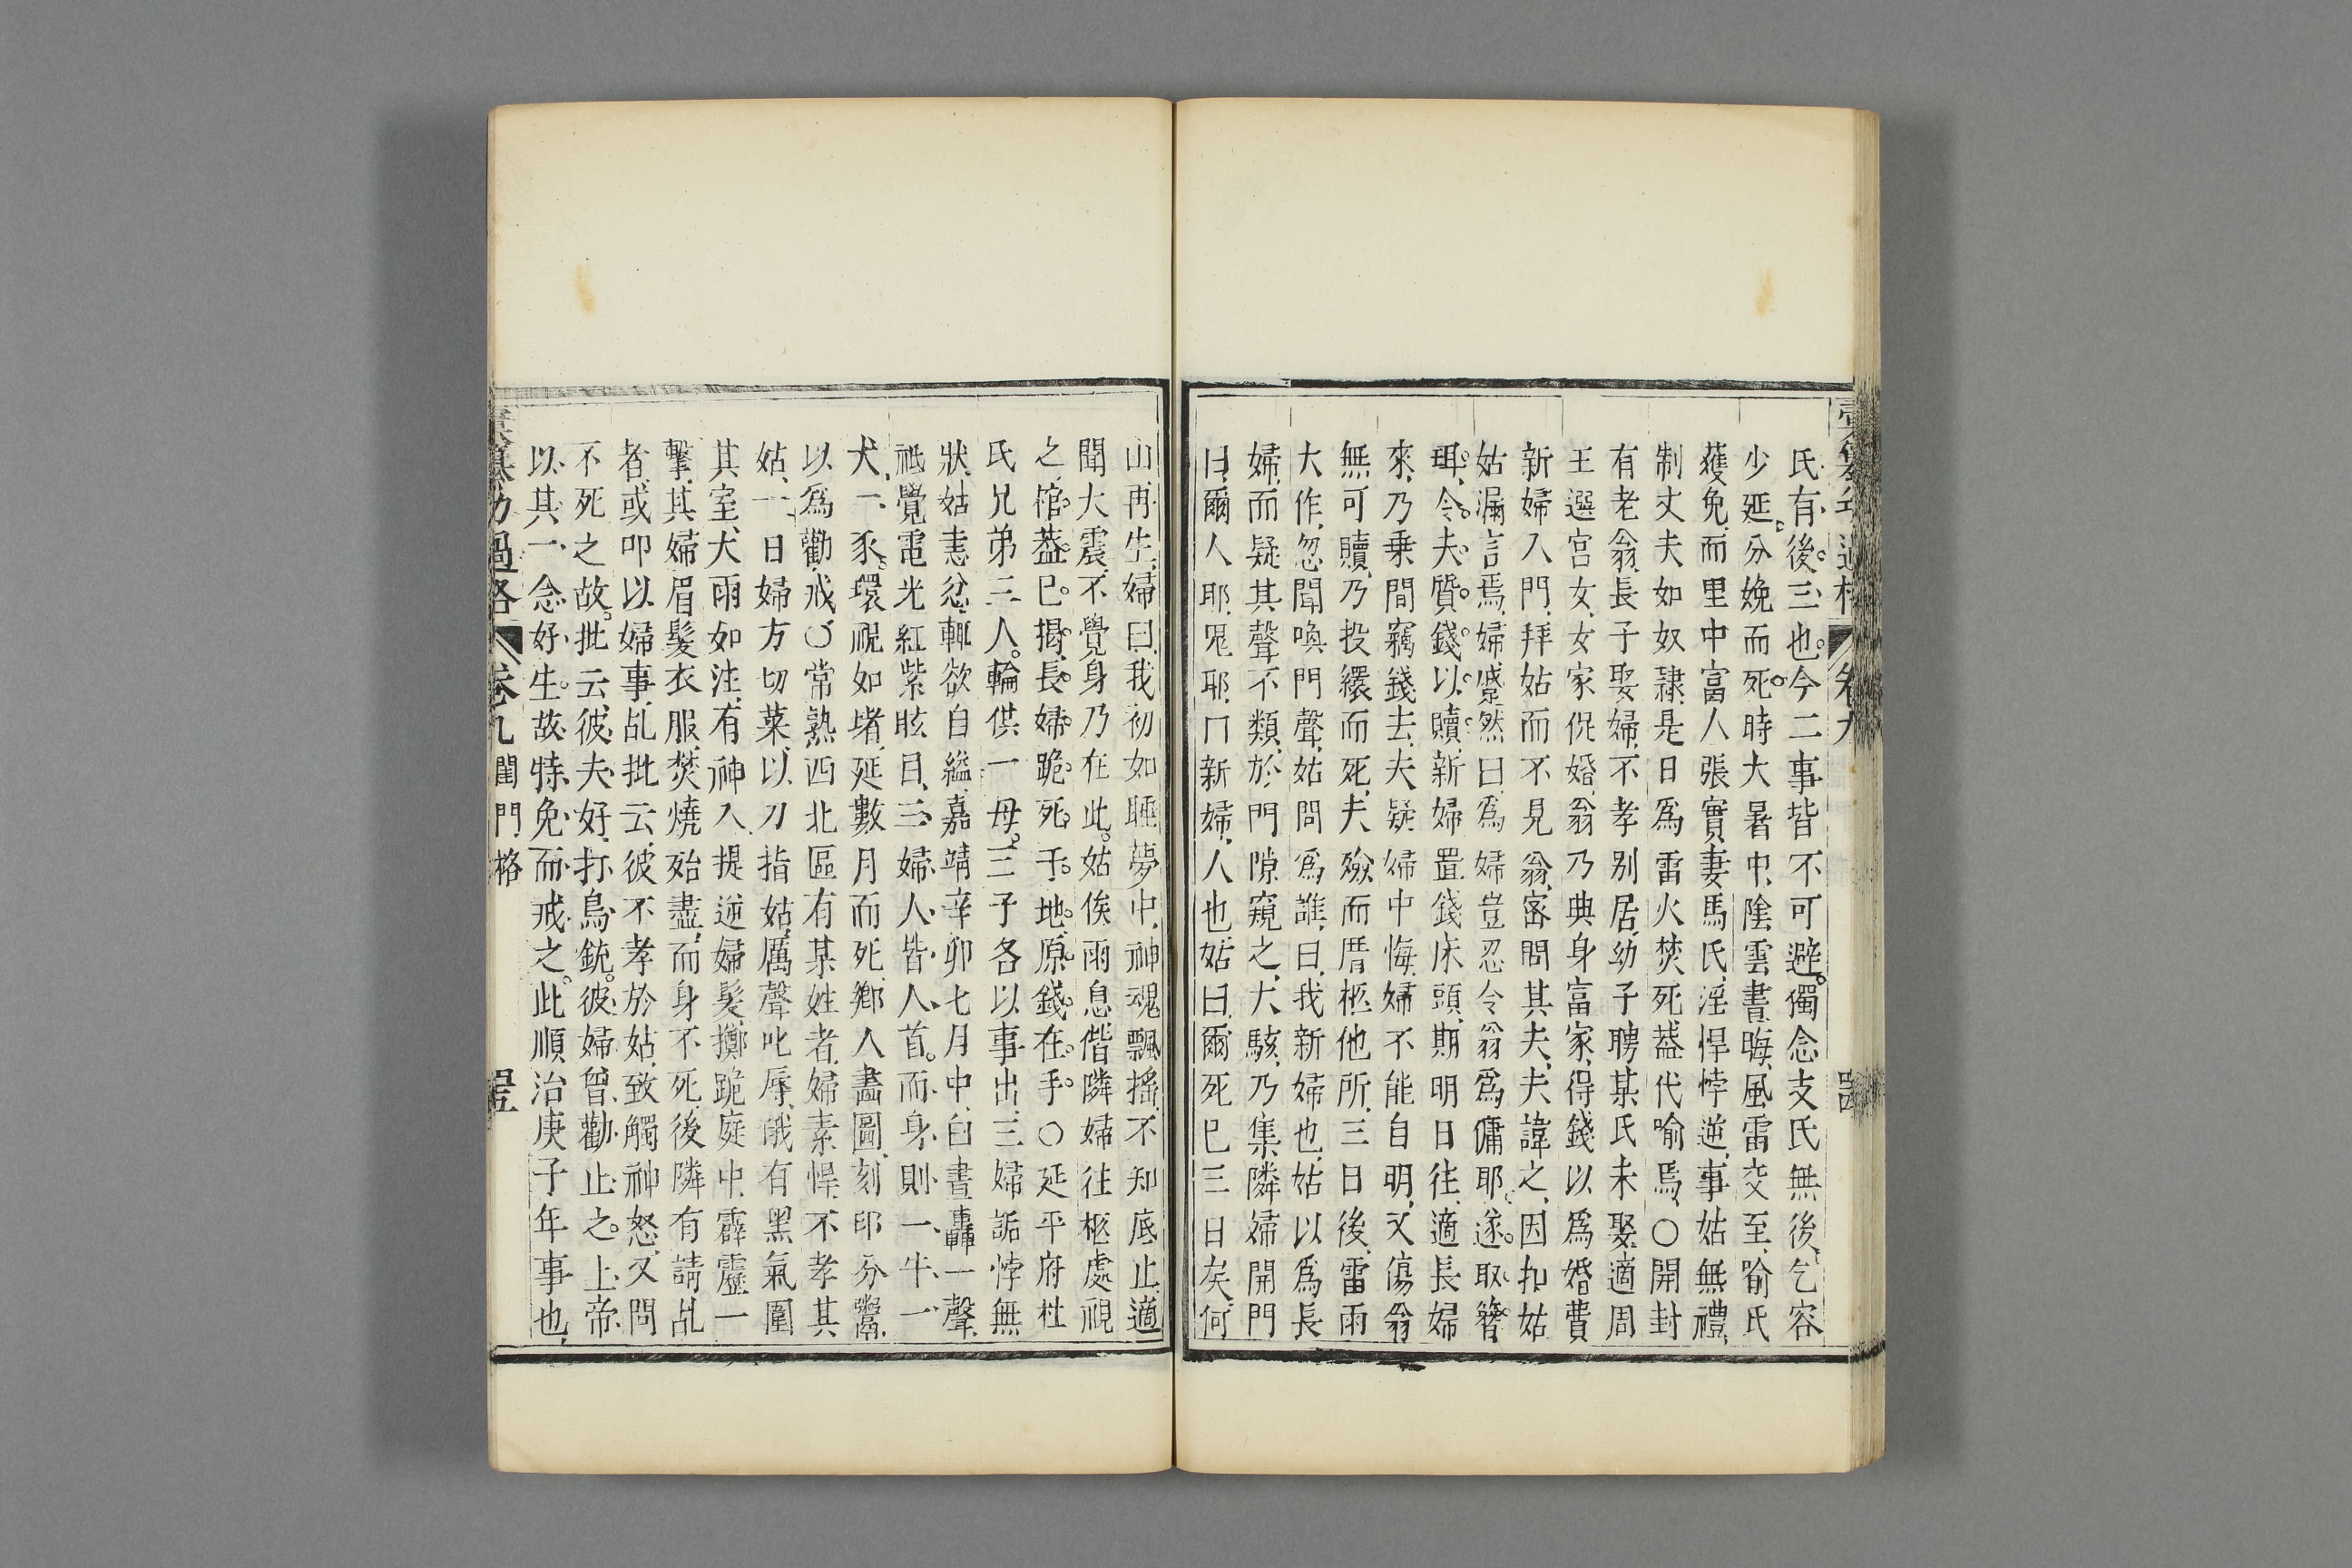 氏有後三也今二事皆不可避獨念支氏無後乞容
少延分娩而死時大暑中陰雲晝晦風雷交至喻氏
獲免而里中富人張實妻馬氏淫悍悖逆事姑無禮
制丈夫如奴隷是日爲雷火焚死葢代喻焉〇開封
有老翁長子娶婦不孝别居幼子聘某氏未娶適周
王選宫女女家促婚翁乃典身富家得錢以爲婚費
新婦入門拜姑而不見翁密問其夫夫諱之因扣姑
姑漏言焉婦蹙然曰爲婦豈忍令翁爲傭耶遂取簪
珥令夫質錢以贖新婦置錢床頭期明日往適長婦
來乃乗間竊錢去夫疑婦中悔婦不能自明又傷翁
無可贖乃投繯而死夫殮而厝柩他所三日後雷雨
大作忽聞喚門聲姑問爲誰曰我新婦也姑以爲長
婦而疑其聲不類於門隙窺之大駭乃集隣婦開門
曰爾人耶鬼耶曰新婦人也姑曰爾死已三日矣何
山再生婦曰我初如睡夢中神魂飄揺不知底止適
聞大震不覺身乃在此姑俟雨息偕隣婦往柩處視
之棺葢已揭長婦跪死于地原錢在手〇延平府杜
氏兄弟三人輪供一母三子各以事出三婦詬悖無
狀姑恚忿輒欲自縊嘉靖辛卯七月中白晝轟一聲
祗覺電光紅紫眩目三婦人皆人首而身則一牛一
犬一豕環視如堵延數月而死鄉人畵圖刻印分鬻
以爲勸戒〇常熟西北區有某姓者婦素悍不孝其
姑一日婦方切菜以刀指姑厲聲叱辱俄有黑氣圍
其室大雨如注有神入提逆婦髮擲跪庭中霹靂一
擊其婦眉髮衣服焚燒殆盡而身不死後隣有請乩
者或叩以婦事乩批云彼不孝於姑致觸神怒又問
不死之故批云彼夫好打鳥銃彼婦曾勸止之上帝
以其一念好生故特免而戒之此順治庚子年事也
過格 卷九 閨門格